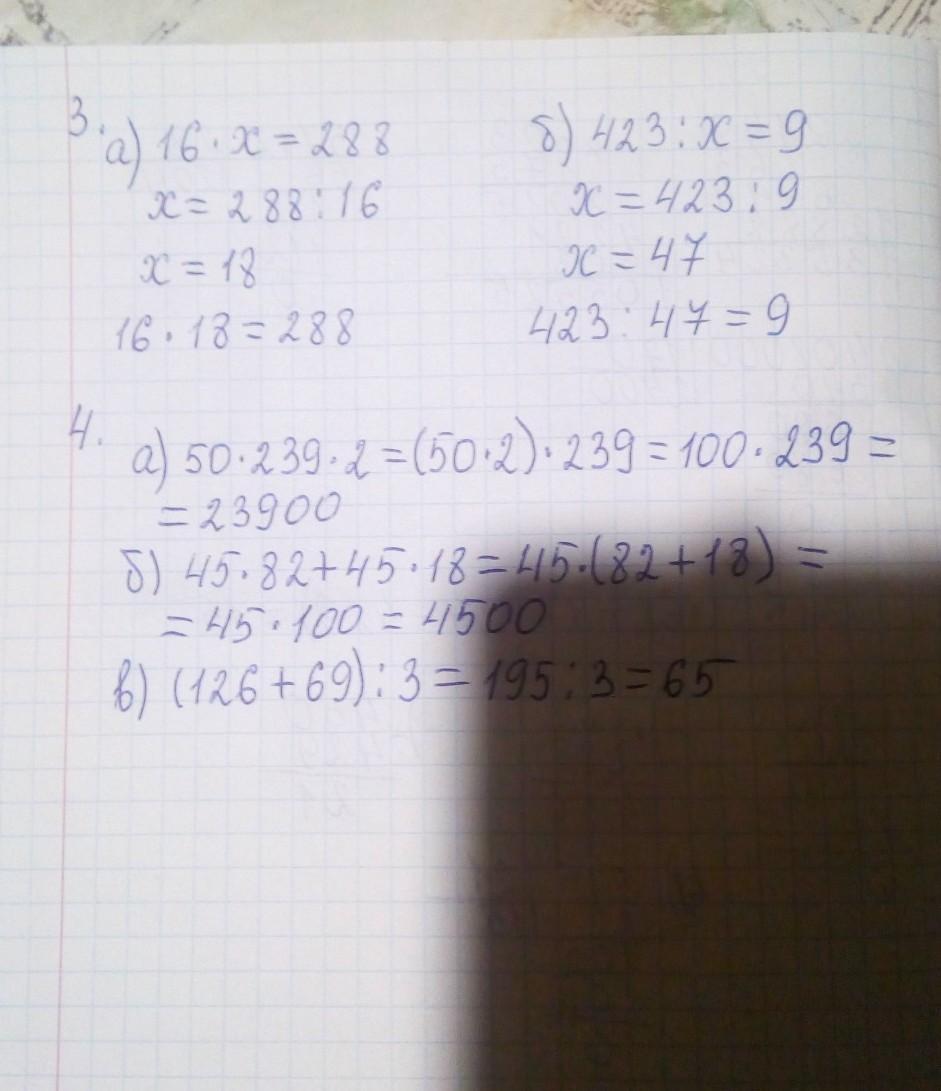 3. а) 16 · x = 288
x = 288 : 16
x = 18
16 · 18 = 288
б) 423 : x = 9
x = 423 : 9
x = 47
423 : 47 = 9
4. а) 50 · 239 · 2 = (50 · 2) · 239 = 100 · 239 =
= 23900
б) 45 · 82 + 45 · 18 = 45 · (82 + 18) =
= 45 · 100 = 4500
в) (126 + 69) : 3 = 195 : 3 = 65